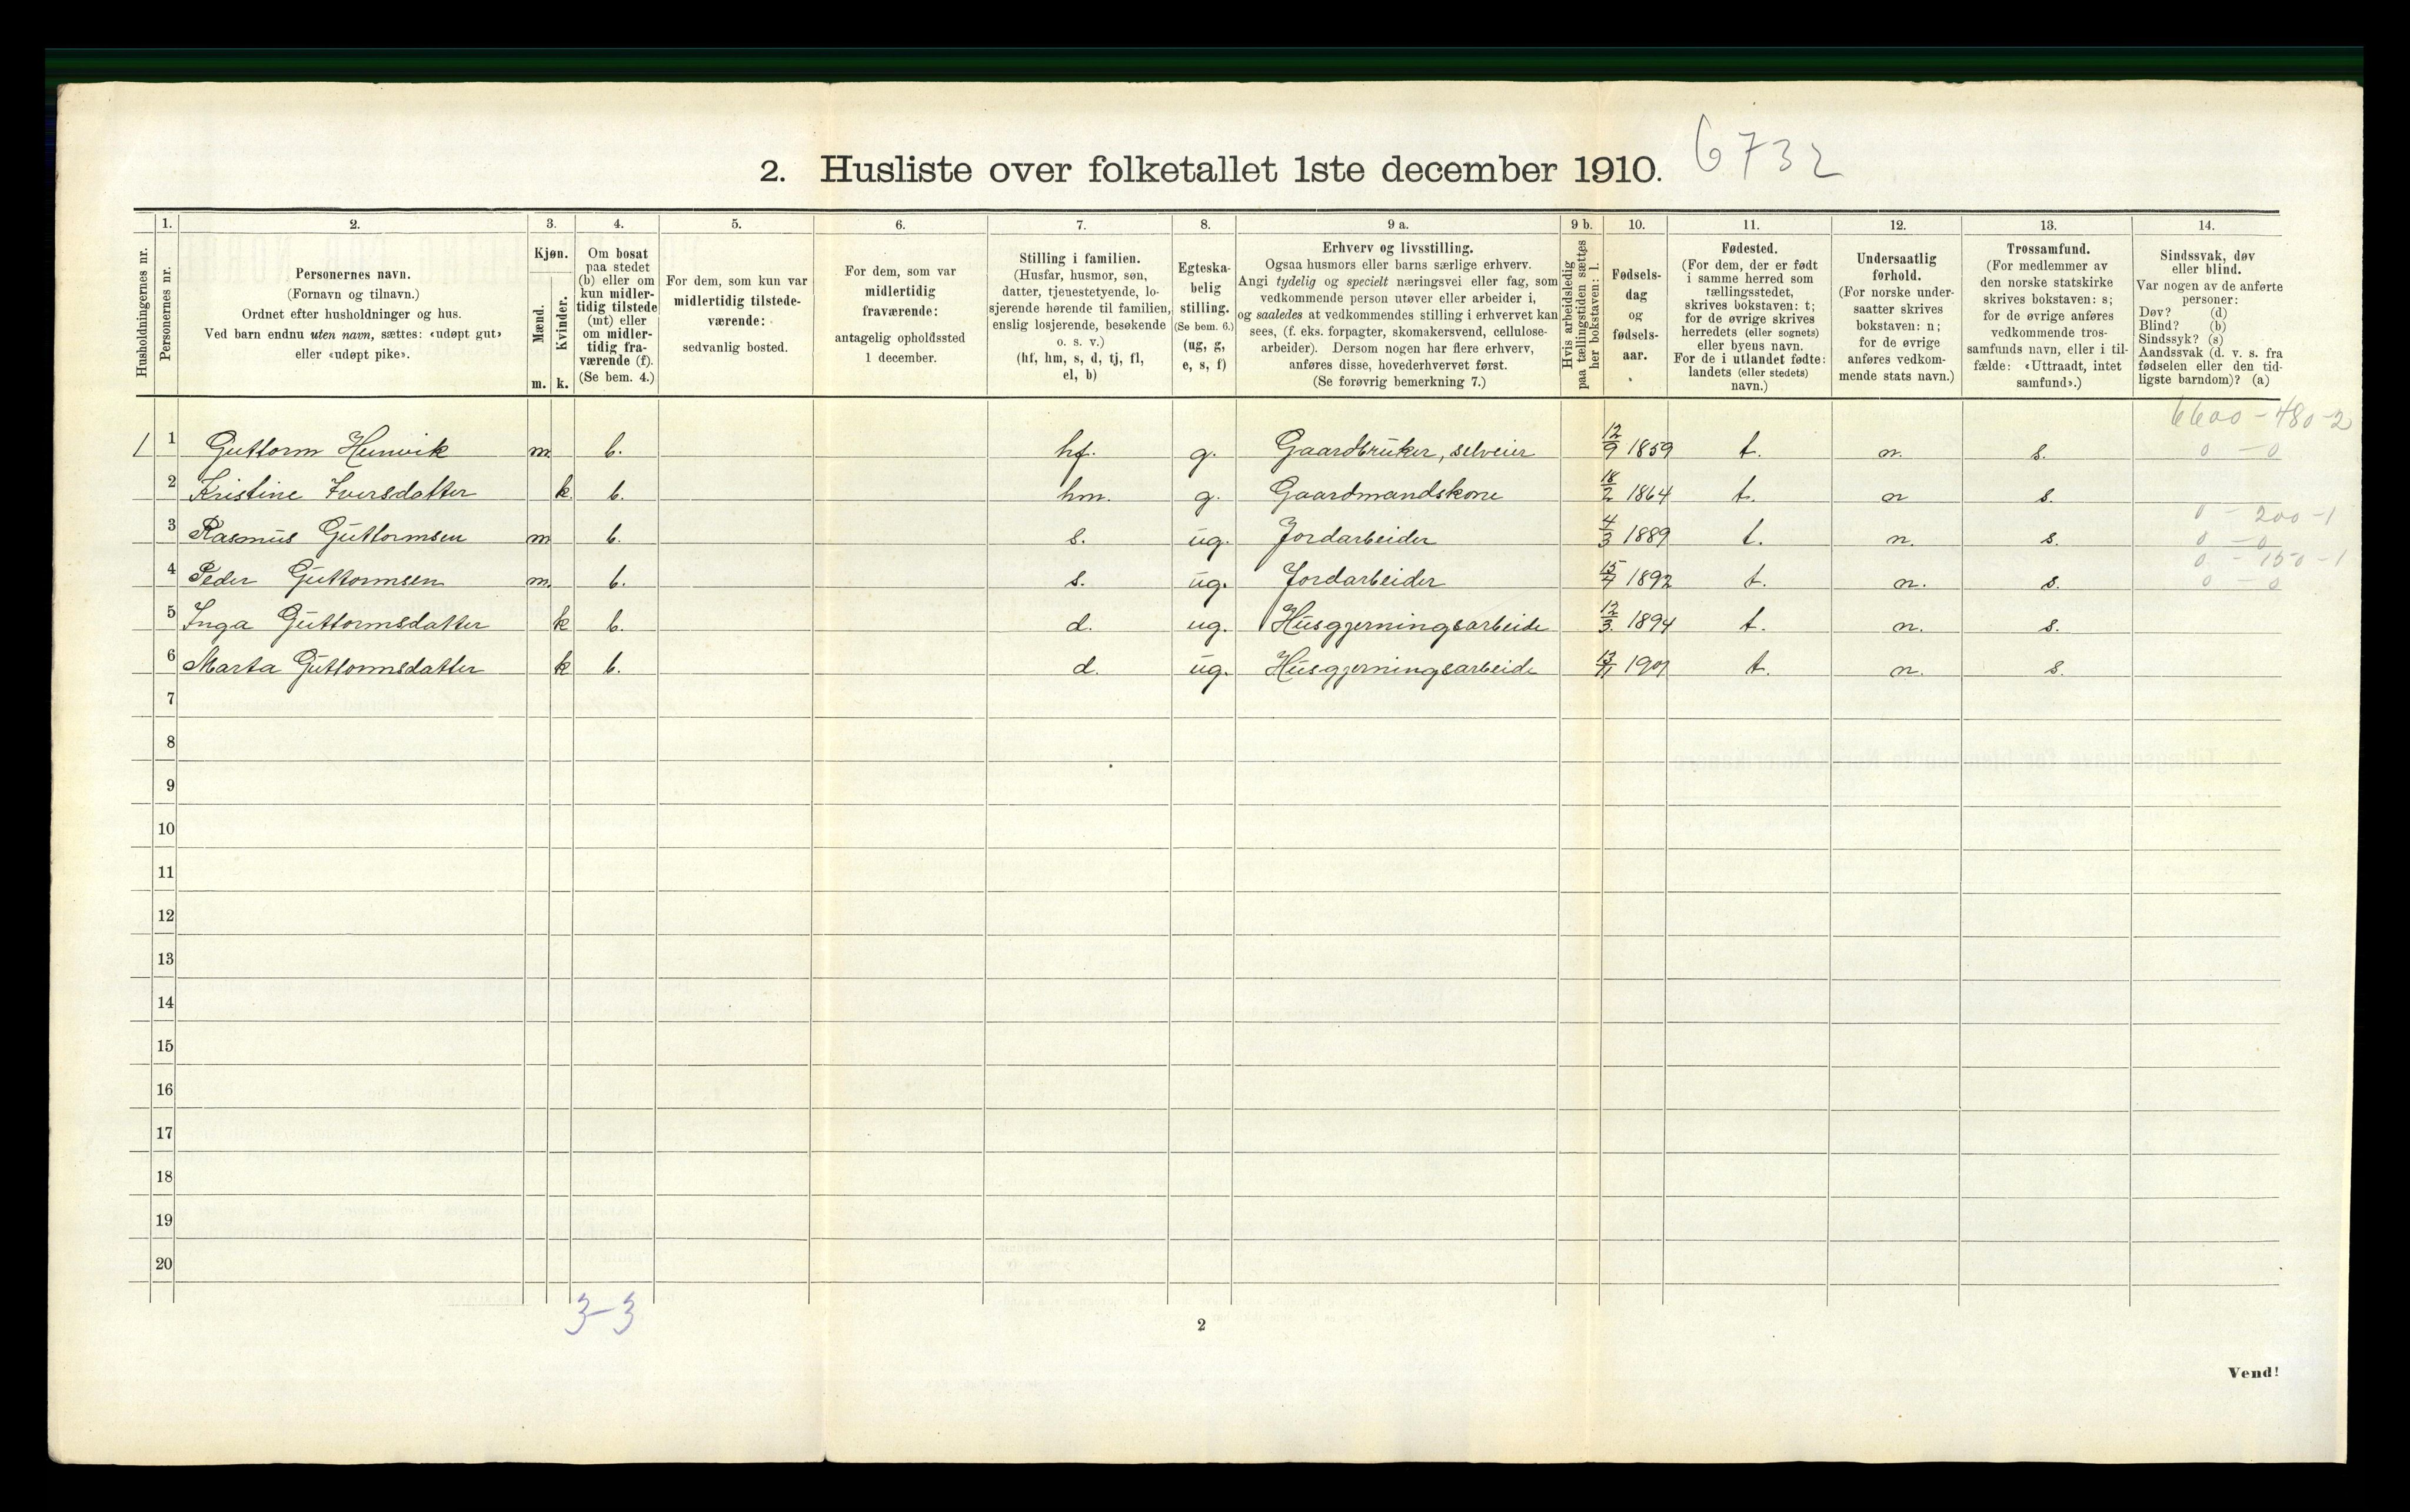 2. Husliste over folketallet 1ste december 1910. 6732
Husholdningernes nr.
1.
Personernes nr.
2.
Personernes navn.
(Fornavn og tilnavn.)
Ordnet efter husholdninger og hus.
Ved barn endnu uten navn, sættes: «udøpt gut»
eller «udøpt pike».
3.
Kjøn.
Mænd.
Kvinder.
m. k.
4.
Om bosat
paa stedet
(b) eller om
kun midler-
tidig tilstede
(mt) eller
om midler-
tidig fra-
værende (f).
(Se bem. 4.)
5.
For dem, som kun var
midlertidig tilstede-
værende:
sedvanlig bosted.
6.
For dem, som var
midlertidig
fraværende:
antagelig opholdssted
1 december.
7.
Stilling i familien.
(Husfar, husmor, søn,
datter, tjenestetyende, lo-
sjerende hørende til familien,
enslig losjerende, besøkende
o. s. v.)
(hf, hm, s, d, tj, fl,
el, b)
8.
Egteska-
belig
stilling.
(Se bem. 6.)
(ug, g,
e, s, f)
9 a.
Erhverv og livsstilling.
Ogsaa husmors eller barns særlige erhverv.
Angi tydelig og specielt næringsvei eller fag, som
vedkommende person utøver eller arbeider i,
og saaledes at vedkommendes stilling i erhvervet kan
sees, (f. eks. forpagter, skomakersvend, cellulose-
arbeider). Dersom nogen har flere erhverv,
anføres disse, hovederhvervet først.
(Se forøvrig bemerkning 7.)
9 b.
Hvis arbeidsledig
paa tællingstiden sættes
her bokstaven: l.
10.
Fødsels-
dag
og
fødsels-
aar.
11.
Fødested.
(For dem, der er født
i samme herred som
tællingsstedet,
skrives bokstaven: t;
for de øvrige skrives
herredets (eller sognets)
eller byens navn.
For de i utlandet fødte:
landets (eller stedets)
navn.)
12.
Undersaatlig
forhold.
(For norske under-
saatter skrives
bokstaven: n;
for de øvrige
anføres vedkom-
mende stats navn.)
13.
Trossamfund.
(For medlemmer av
den norske statskirke
skrives bokstaven: s;
for de øvrige anføres
vedkommende tros-
samfunds navn, eller i til-
fælde: «Uttraadt, intet
samfund».)
14.
Sindssvak, døv
eller blind.
Var nogen av de anførte
personer:
Døv? (d)
Blind? (b)
Sindssyk? (s)
Aandssvak (d. v. s. fra
fødselen eller den tid-
ligste barndom)? (a)
6600 - 480 - 2
1 1 Guttorm m. b. hf. g. Gaardbruker, selveier 12/9 1859 t. n. s. 0 - 0
2 Kristine Iversdatter k. b. hm. g. Gaardmandskone 18/2 1864 t. n s.
0 - 200 - 1
3 Rasmus Guttormsen m b. s. ug. Jordarbeider 4/3 1889 t. n. s. 0 - 0
0 - 150 - 1
4 Peder Guttormsen m. b. s. ug. Jordarbeider 15/7 1892 t. n. s. 0 - 0
5 Inga Guttormsdatter k b. d. ug. Husgjerningsarbeide 12/3. 1894 t. n. s.
6 Marta Guttormsdatter k b. d. ug. Husgjerningsarbeide t. n. s.
7
8
9
10
11
12
13
14
15
16
17
18
19
20
3-3
2
Vend!